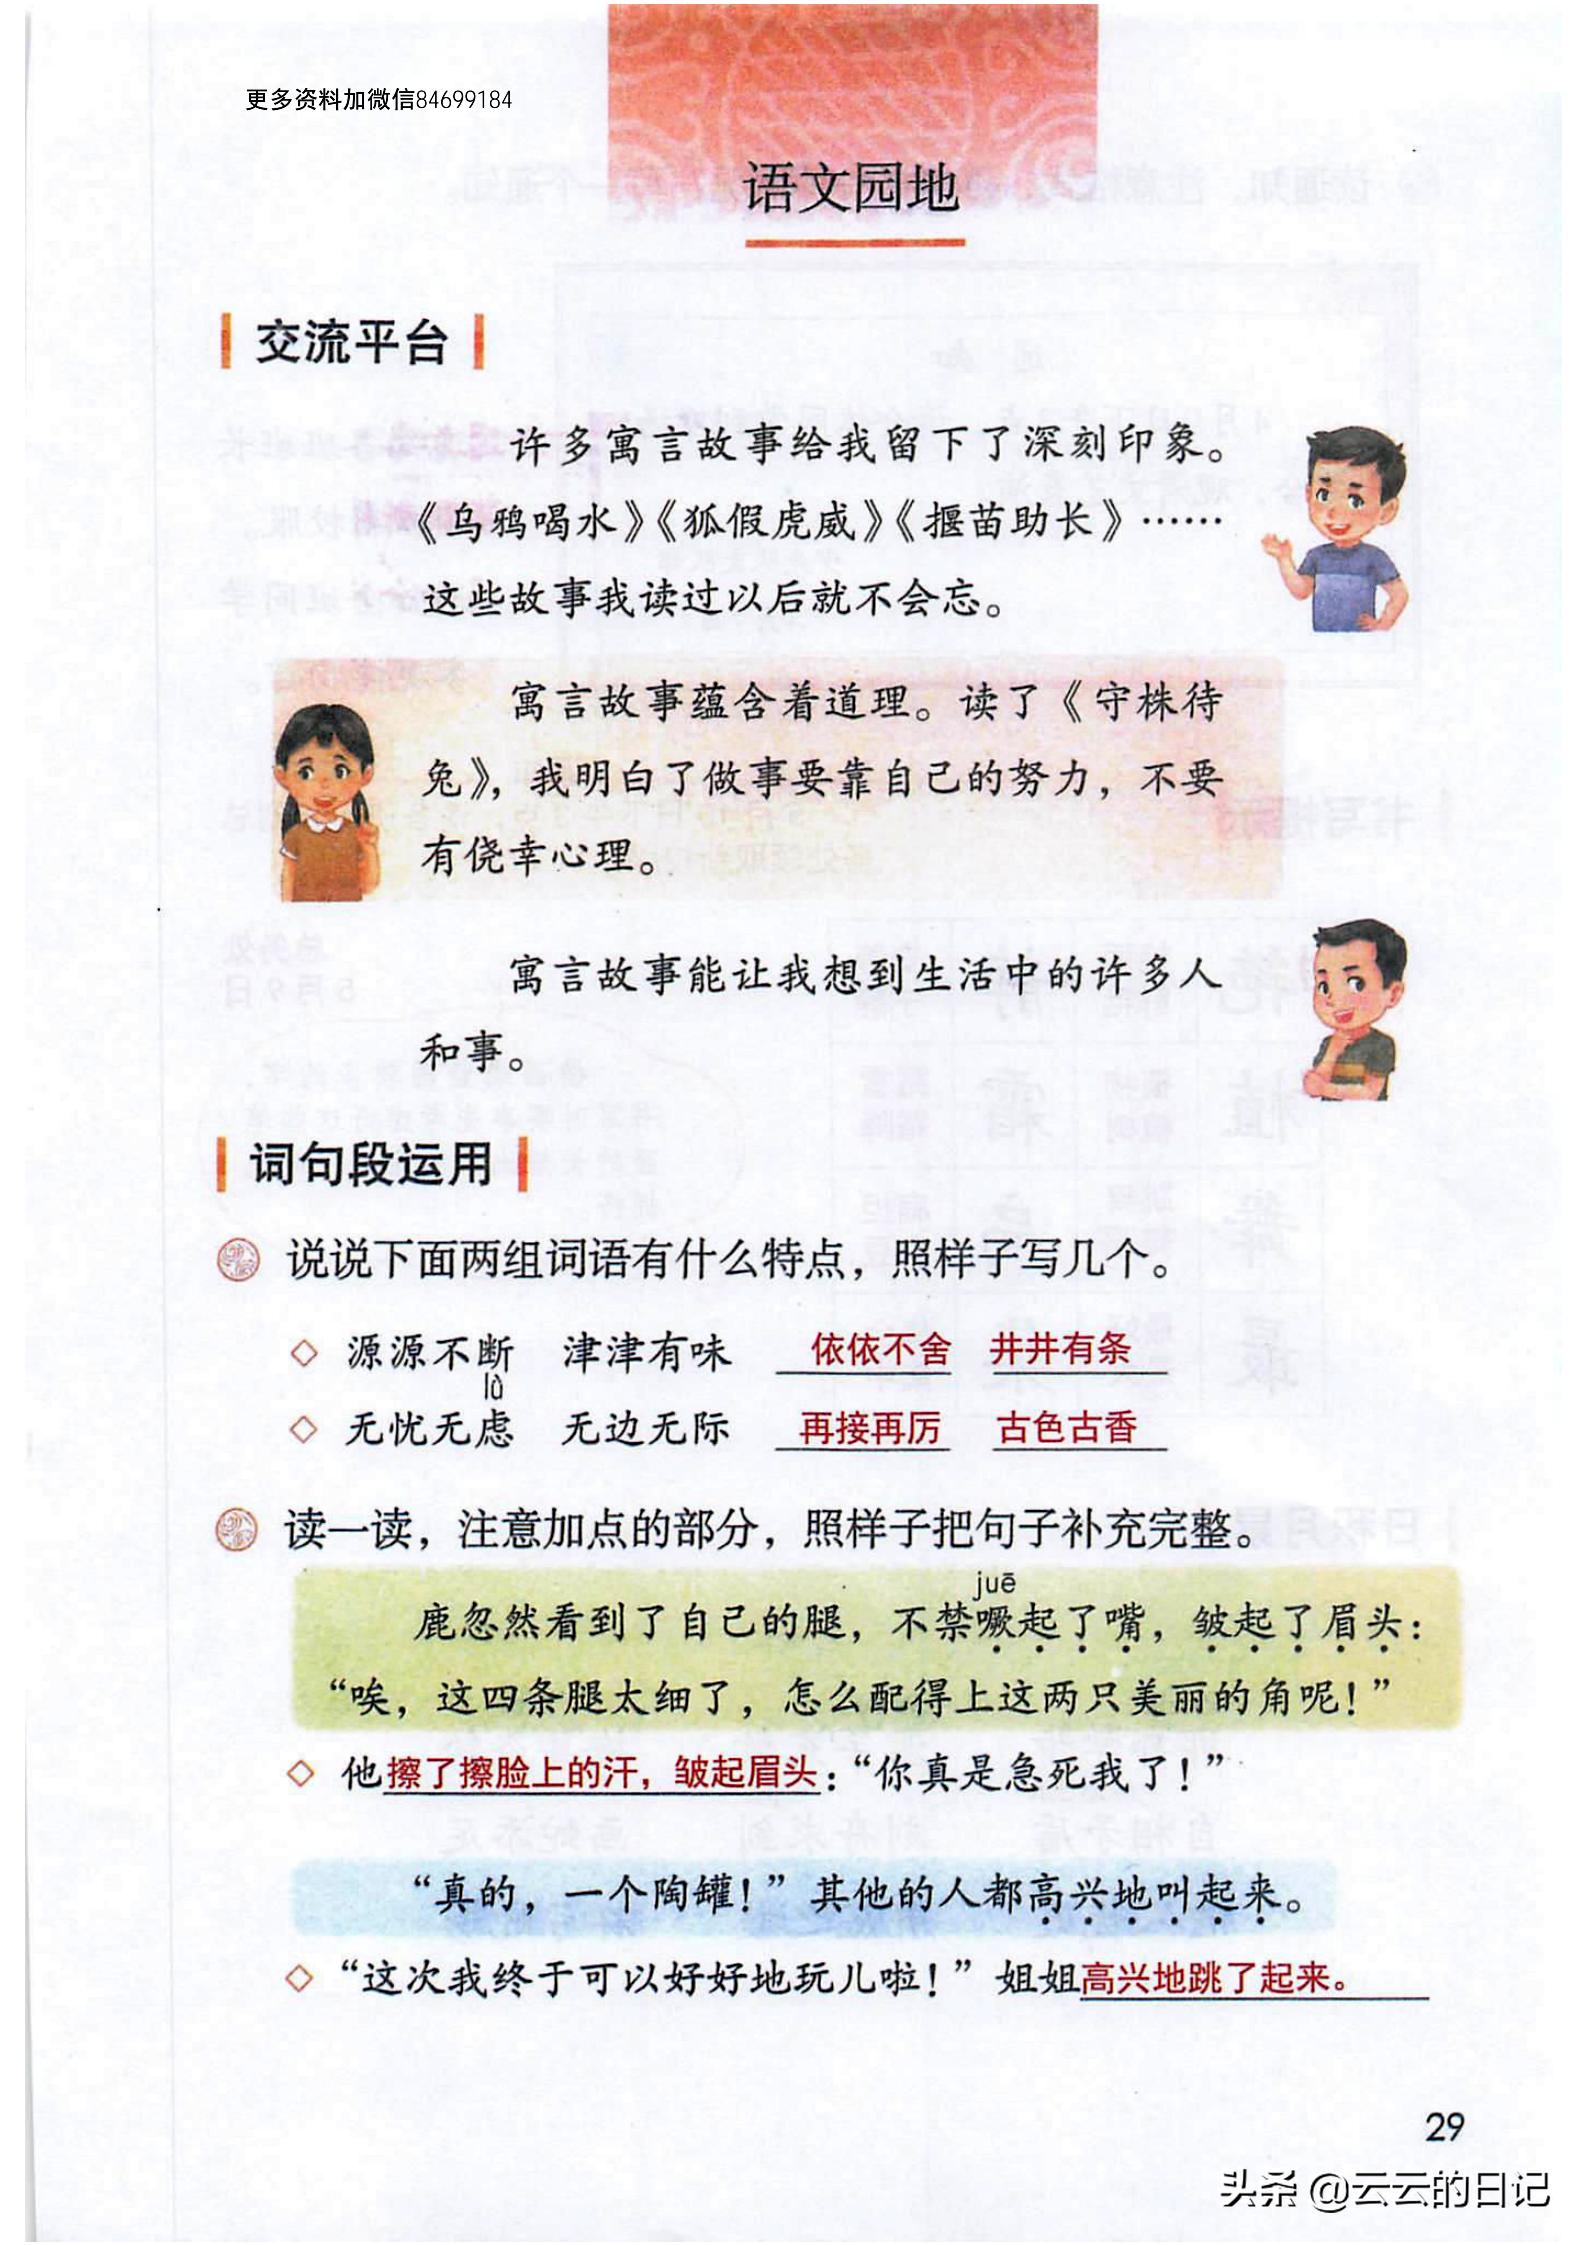 更多资料加微信84699184
语文园地
交流平台
许多寓言故事给我留下了深刻印象。
《乌鸦喝水》《狐假虎威》《揠苗助长》……
这些故事我读过以后就不会忘。
寓言故事蕴含着道理。读了《守株待
兔》，我明白了做事要靠自己的努力，不要
有侥幸心理。
寓言故事能让我想到生活中的许多人
和事。
词句段运用
说说下面两组词语有什么特点，照样子写几个。
源源不断 津津有味 依依不舍 井井有条
lǜ
无忧无虑 无边无际 再接再厉 古色古香
读一读，注意加点的部分，照样子把句子补充完整。
juē
鹿忽然看到了自己的腿，不禁噘起了嘴，皱起了眉头：
“唉，这四条腿太细了，怎么配得上这两只美丽的角呢！”
他擦了擦脸上的汗，皱起眉头：“你真是急死我了！”
“真的，一个陶罐！”其他的人都高兴地叫起来。
“这次我终于可以好好地玩儿啦！”姐姐高兴地跳了起来。
29
头条 @云云的日记